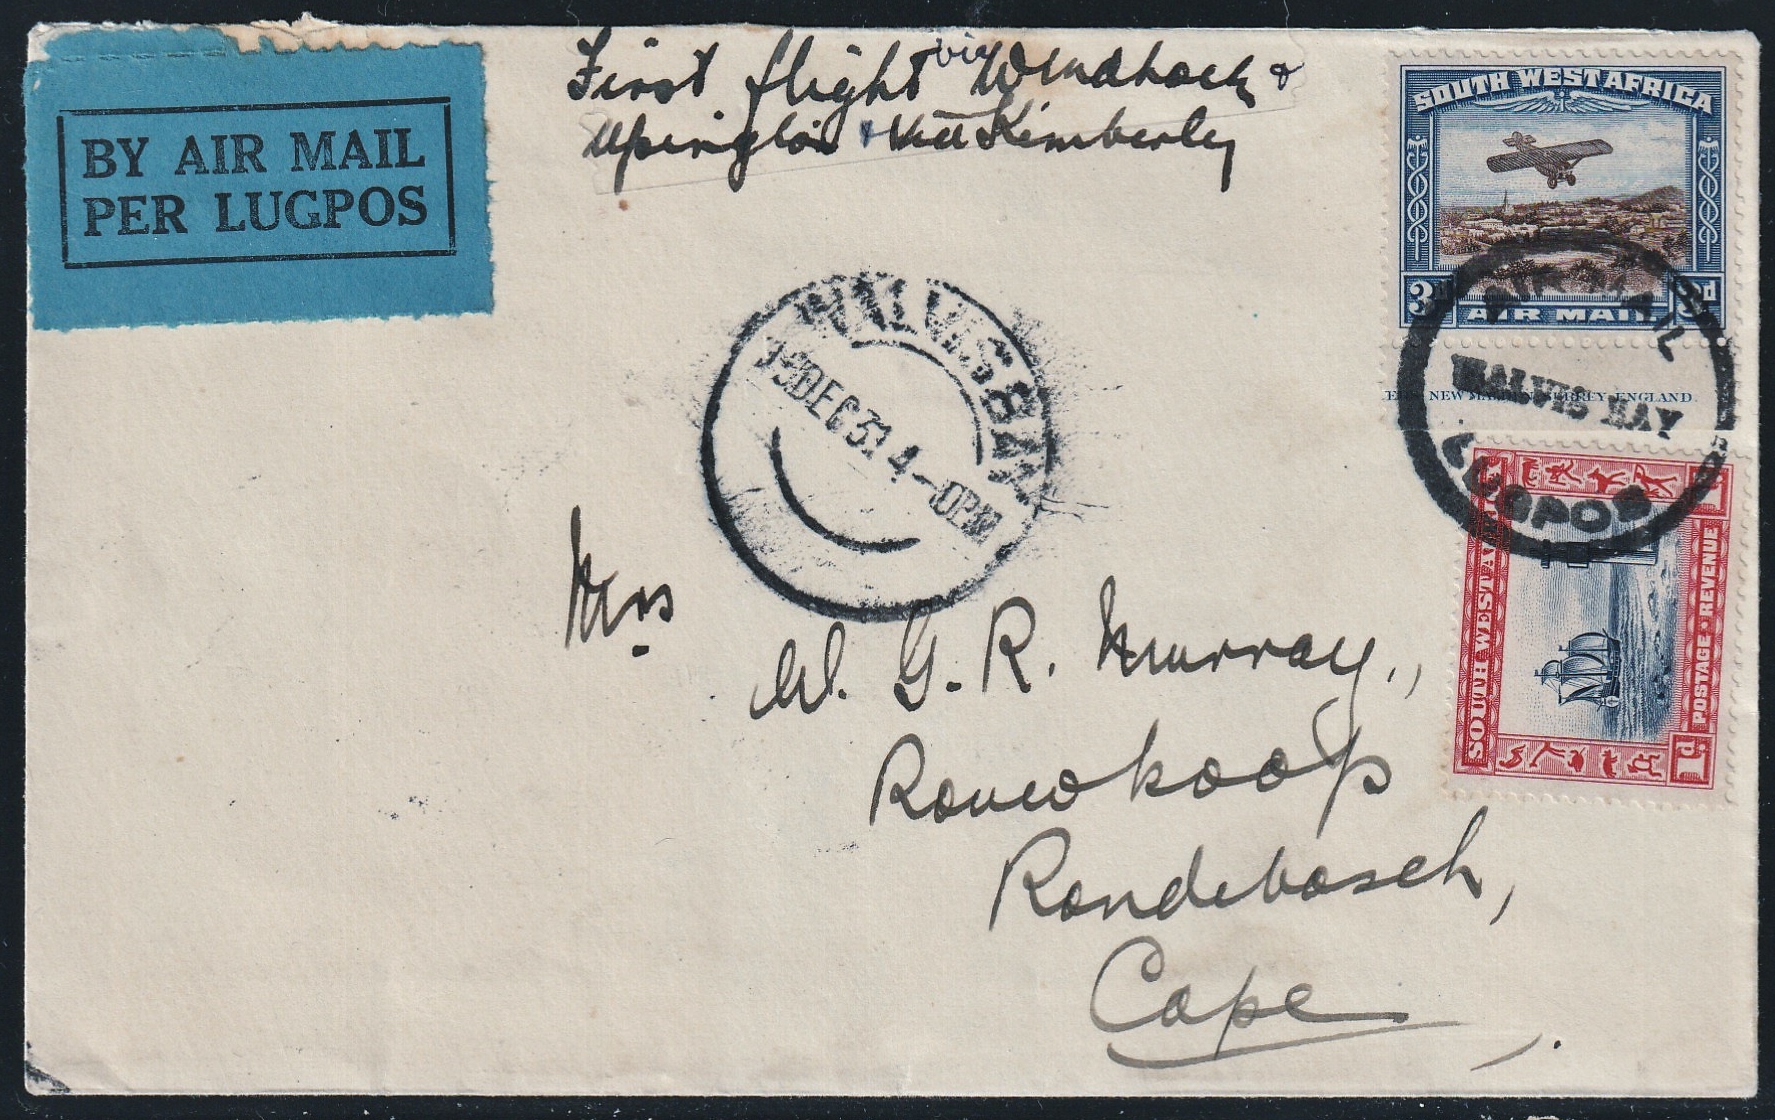 BY AIR MAIL
PER LUGPOS
First flight via Windhoek &
Upington & via Kimberley
SOUTH WEST AFRICA
3d 3d
AIR MAIL
NEW MALDEN, SURREY, ENGLAND.
AIR MAIL
WALVIS BAY
LUGPOS
WALVIS BAY
DEC 31 4–0PM
SOUTH WEST AFRICA
POSTAGE REVENUE
1d.
Mrs
W. G. R. Murray,
Rouwkoop
Rondebosch,
Cape.